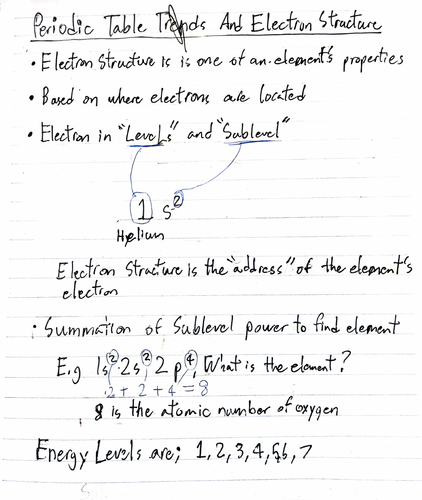 Periodic Table Trends And Electron Structure
• Electron Structure is is one of an element's properties
• Based on where electrons are located
• Electron in "Levels" and "Sublevel"
1 s²
Helium
Electron Structure is the "address" of the element's
electron
• Summation of Sublevel power to find element
E.g 1s² 2s² 2p⁴, What is the element?
2 + 2 + 4 = 8
8 is the atomic number of oxygen
Energy Levels are; 1, 2, 3, 4, 5, 6, 7